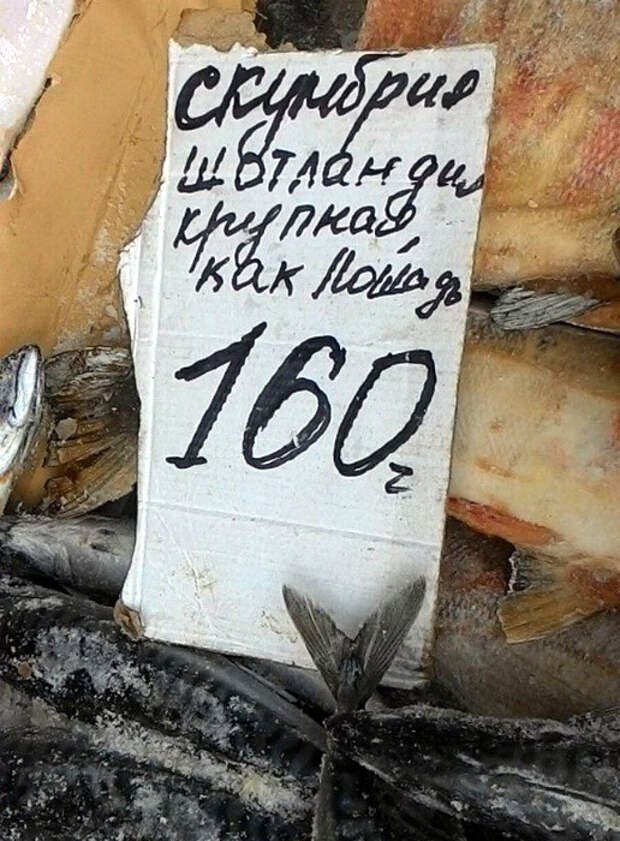 скумбрия
шотландия
крупная,
как лошадь
160 г